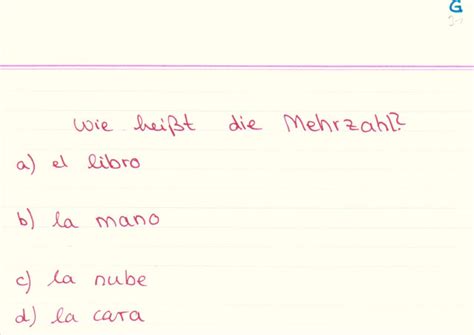 G
Wie heißt die Mehrzahl?
a) el libro
b) la mano
c) la nube
d) la cara